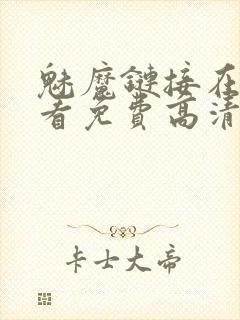 魅魔鏈接在
看免費高清
卡士大帝